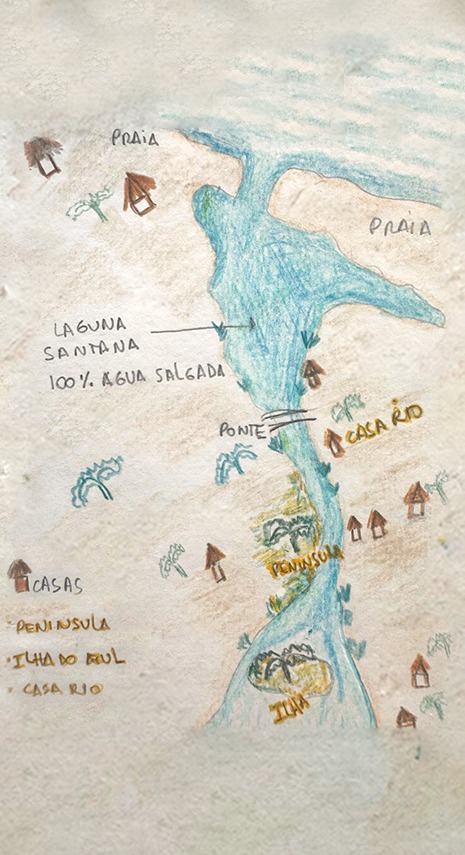 PRAIA
PRAIA
LAGUNA
SANTANA
100% ÁGUA SALGADA
PONTE
CASA RIO
PENINSULA
CASAS
PENINSULA
• ILHA DO AZUL
• CASA RIO
ILHA